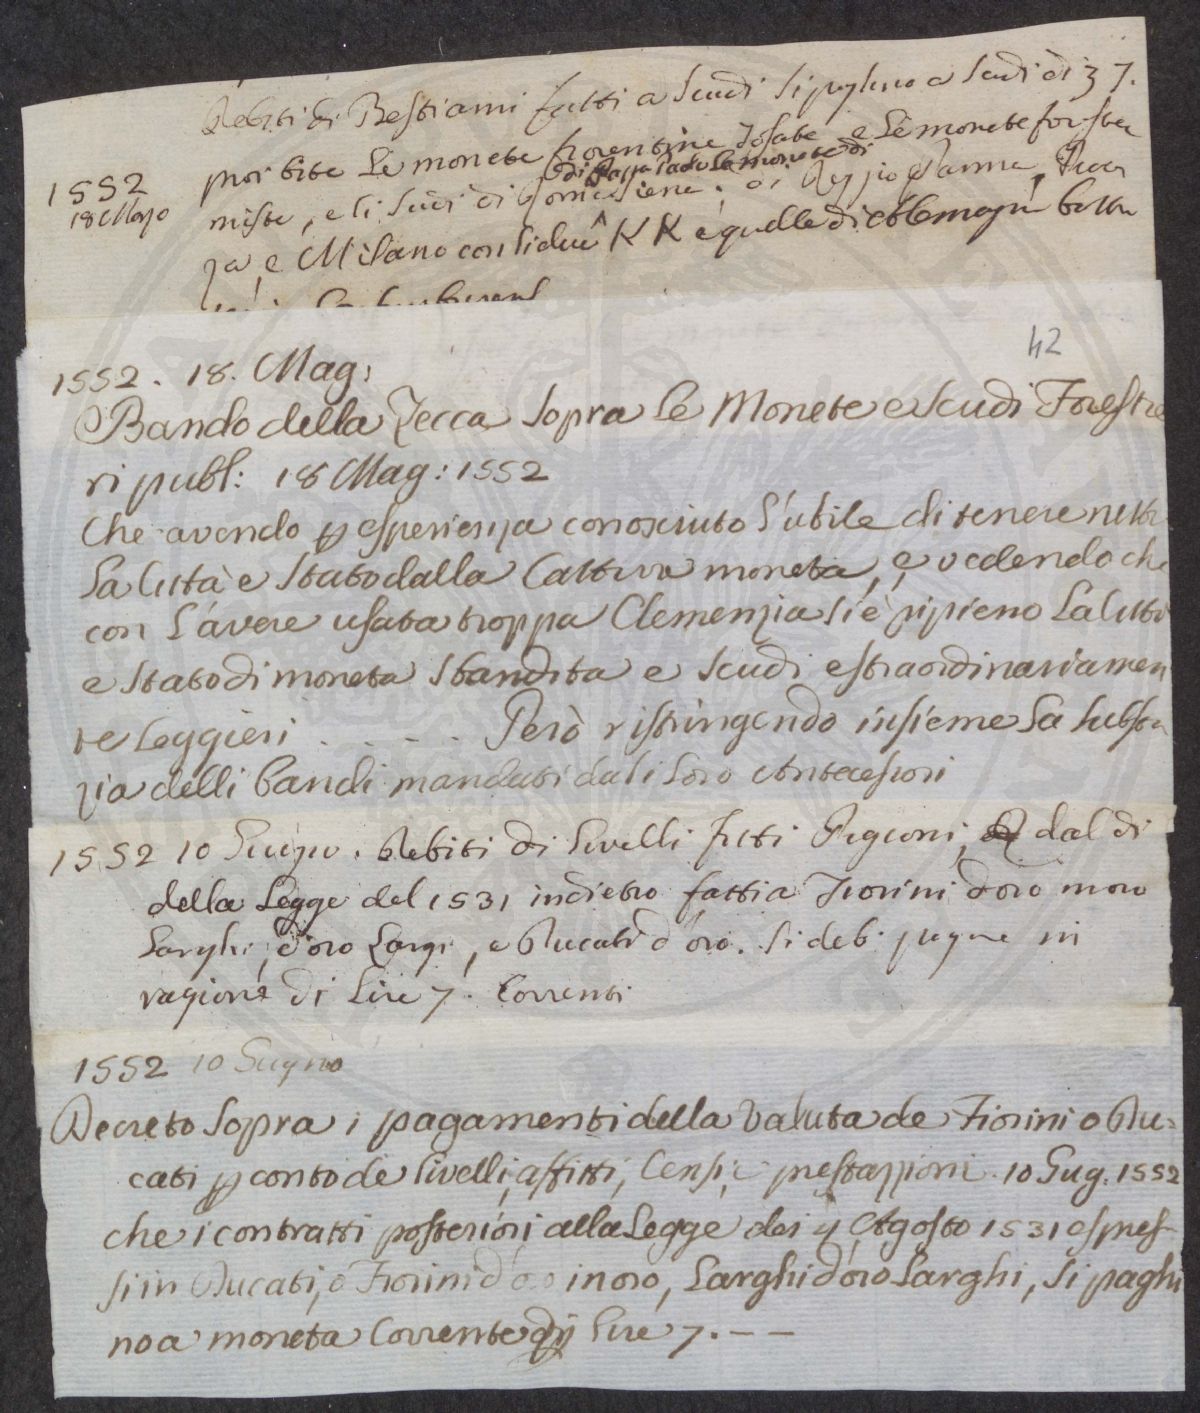 Debiti di Bestiami fatti a Scudi si paghino a Scudi di 37.
1552
18 Mago
proibite le monete fiorentine Tosate e le monete foreste
di
miste, e li Scudi di Siena. di Reggio Parma,
e Milano con li due K K e quelle di
42
1552. 18. Mag:
Bando della Zecca sopra le Monete e Scudi Forestie
ri publ: 18 Mag: 1552
Che avendo p esperienza conosciuto l'utile di tenere netta
la Città e Stato dalla Cattiva moneta, e vedendo che
con l'avere usata troppa Clemenzia si è ripieno la Città
e Stato di moneta sbandita e Scudi estraordinariamen
te leggieri . . . . . Però ristringendo insieme la substan
zia delli bandi mandati dali loro Antecessori
1552 10 Giugno. Debiti di livelli fitti Pigioni, dal di
della Legge del 1531 indietro fatti a Fiorini d'oro inoro
larghi, d'oro Largi, e Ducati d'oro. si deb: pagare in
ragione di lire 7. Correnti
1552 10 Giugno
Decreto sopra i pagamenti della Valuta de Fiorini o Du=
cati p conto de livelli, affitti, Censi, e prestazzioni. 10 Giug. 1552
che i contratti posteriori alla Legge dei 4 Agosto 1531 espres=
si in Ducati, o Fiorini d'oro in oro, Larghi d'oro Larghi, si paghi
no a moneta Corrente di lire 7. — —